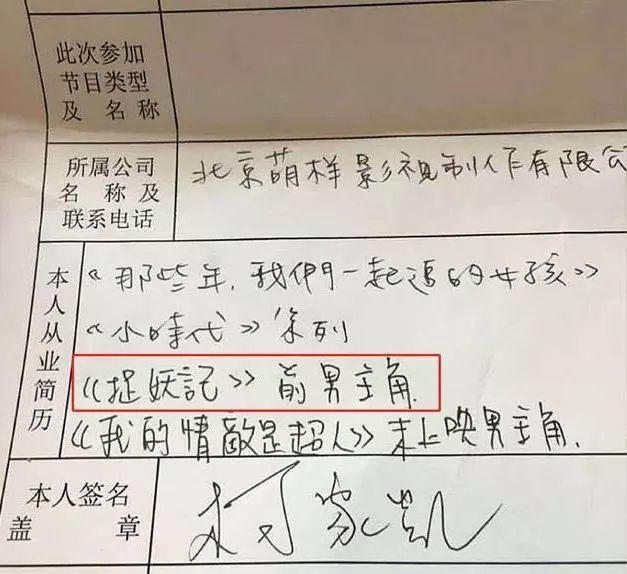 此次参加
节目类型
及名称
所属公司
名称及
联系电话
北京萌样影视制作有限公
本人从业简历
《那些年,我們一起追的女孩》
《小時代》系列
《捉妖記》前男主角.
《我的情敵是超人》未上映男主角.
本人签名
盖章
柯家凯